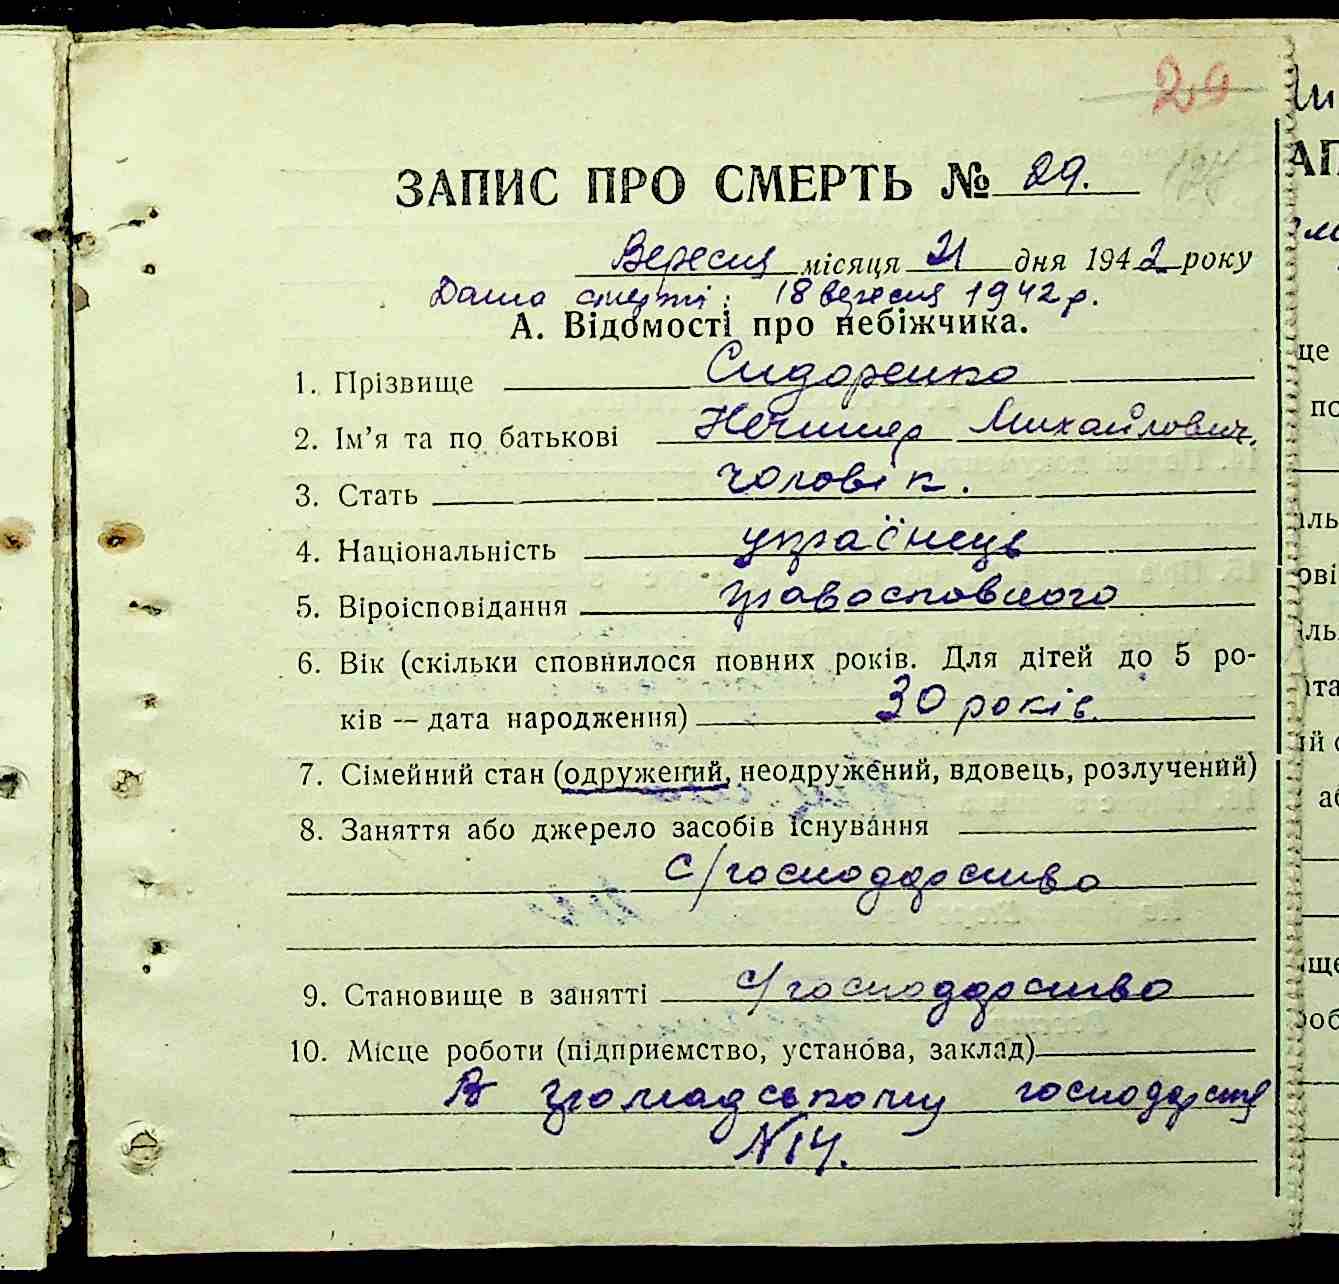 29
ЗАПИС ПРО СМЕРТЬ № 29.
Вересня місяця 21 дня 1942 року
Дата смерті: 18 вересня 1942 р.
А. Відомості про небіжчика.
1. Прізвище Сидоренко
2. Ім’я та по батькові Нечипор Михайлович.
3. Стать чоловік.
4. Національність українець
5. Віроісповідання православного
6. Вік (скільки сповнилося повних років. Для дітей до 5 ро-
ків — дата народження) 30 років.
7. Сімейний стан (одружений, неодружений, вдовець, розлучений)
8. Заняття або джерело засобів існування
с/господарство
9. Становище в занятті с/господарство
10. Місце роботи (підприємство, установа, заклад)
В громадському господарстві
№14.